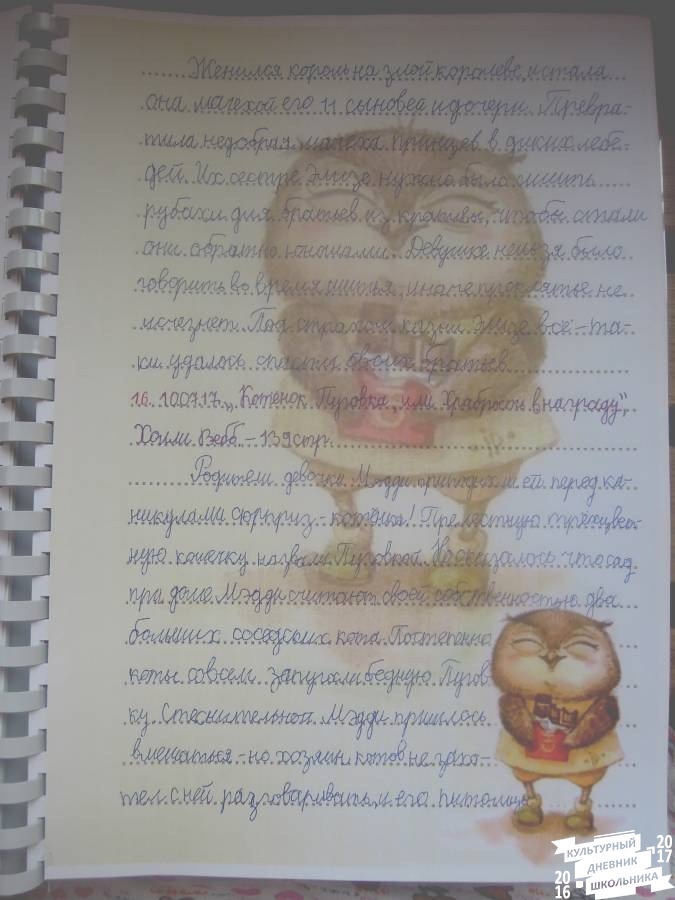 Женился король на злой королеве, и стала
она мачехой его 11 сыновей и дочери. Превра-
тила недобрая мачеха принцев в диких лебе-
дей. Их сестре Элизе нужно было сшить
рубахи для братьев из крапивы, чтобы стали
они обратно юношами. Девушке нельзя было
говорить во время шитья, иначе проклятье не
исчезнет. Под страхом казни Элизе всё-та-
ки удалось спасти своих братьев.
16. 10.07.17 „Котёнок Пуговка, или Храбрость в награду",
Холли Вебб - 139 стр.
Родители девочки Мэдди приготовили ей перед ка-
никулами сюрприз - котёнка! Прелестную трёхцвет-
ную кошечку назвали Пуговкой. Но оказалось, что сад
при доме Мэдди считают своей собственностью два
больших соседских кота. Постепенно
коты совсем запугали бедную Пугов-
ку. Стеснительной Мэдди пришлось
вмешаться - но хозяин котов не захо-
тел с ней разговаривать, и его питомцы
КУЛЬТУРНЫЙ
ДНЕВНИК
ШКОЛЬНИКА
2016
2017